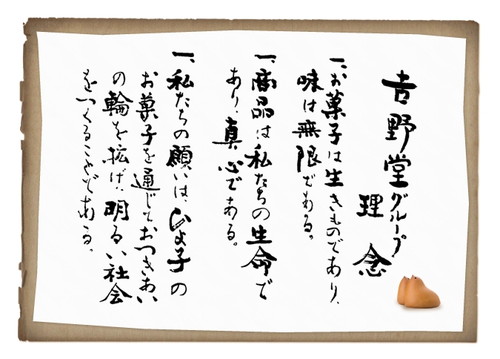 吉野堂グループ
理念
一、お菓子は生きものであり、
味は無限である。
一、商品は私たちの生命で
あり、真心である。
一、私たちの願いは、ひよ子の
お菓子を通じておつきあい
の輪を拡げ、明るい社会
をつくることである。